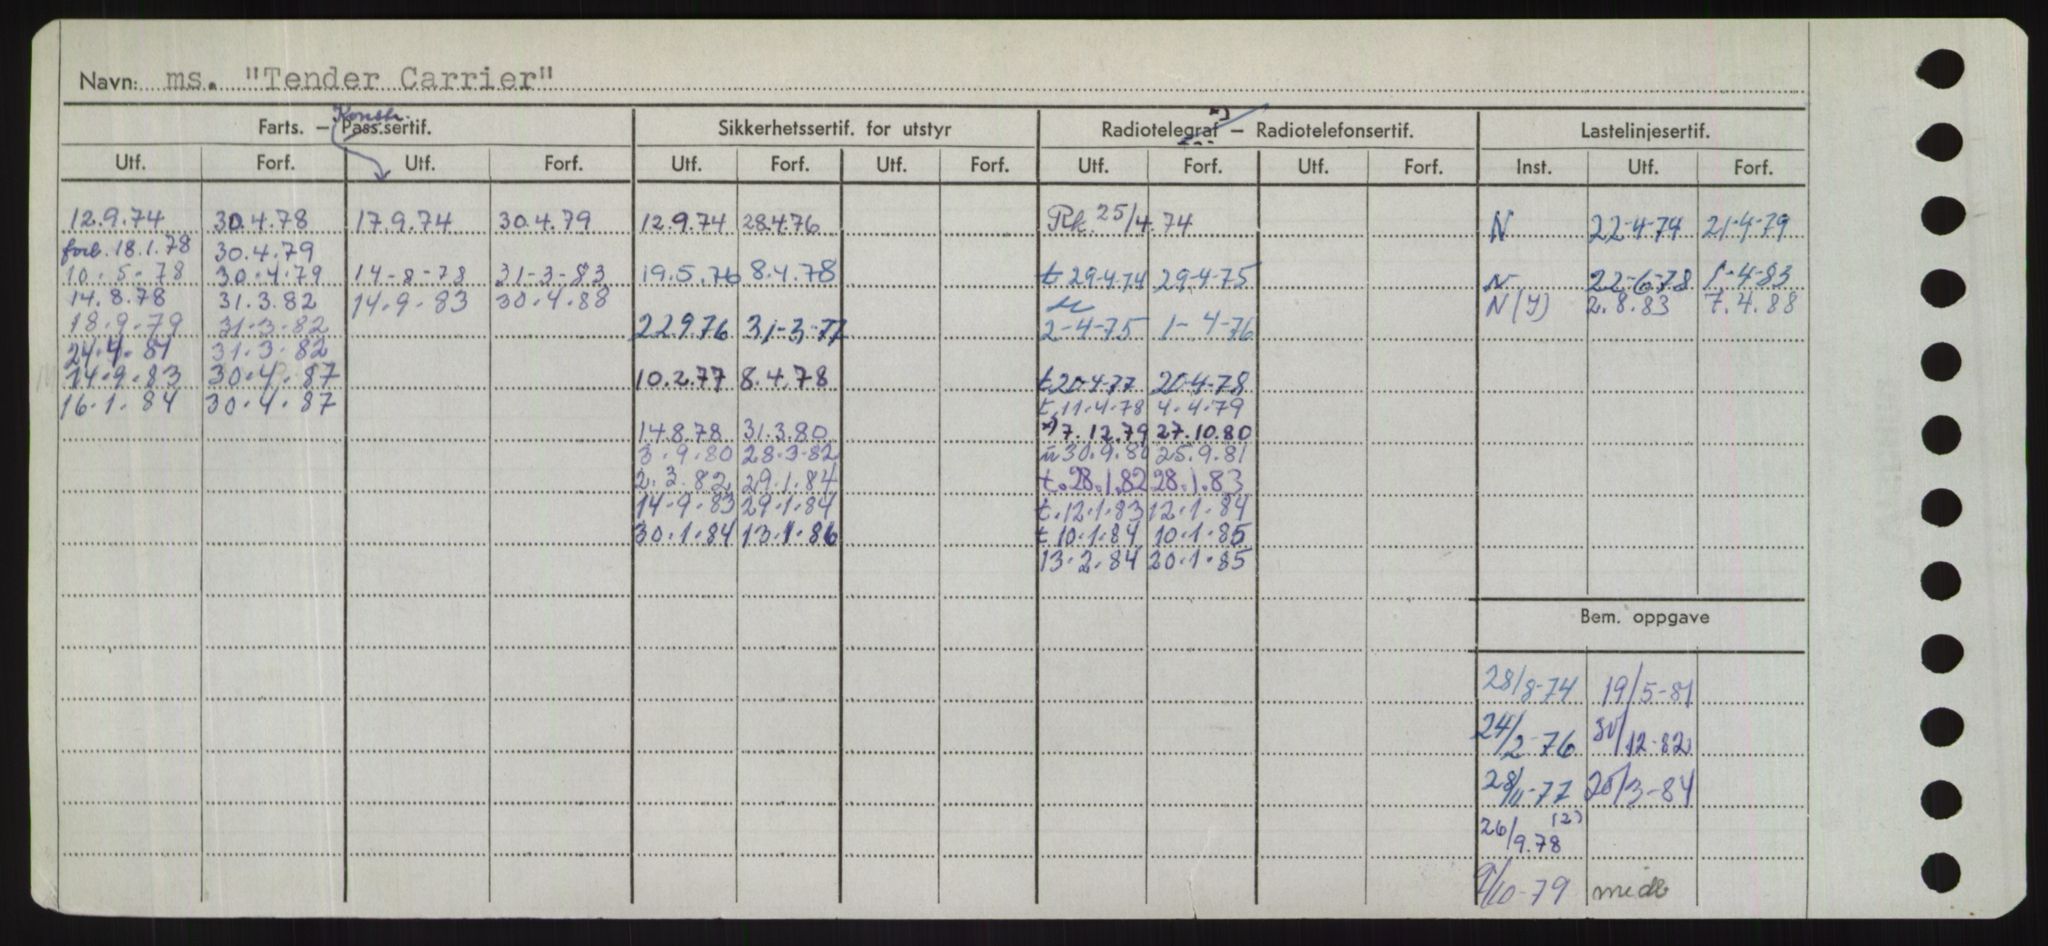 Navn: ms. "Tender Carrier"
Konstr.
Farts. — Pass.sertif. Sikkerhetssertif. for utstyr Radiotelegraf — Radiotelefonsertif. Lastelinjesertif.
Utf. Forf. Utf. Forf. Utf. Forf. Utf. Forf. Utf. Forf. Utf. Forf. Inst. Utf. Forf.
12.9.74 30.4.78 17.9.74 30.4.79 12.9.74 28.4.76 Rk. 25/4.74 N 22-4-74 21-4-79
forl. 18.1.78 30.4.79
10.5.78 30.4.79 14-8-78 31-3-83 19.5.76 8.4.78 t 29-4-74 29-4-75 N 22-6-78 1-4-83
14.8.78 31.3.82 14.9.83 30.4.88 N(Y) 2.8.83 7.4.88
18.9.79 31.3.82 22.9.76 31-3-77 2-4-75 1-4-76
24.4.81 31.3.82
14.9.83 30.4.87 10.2.77 8.4.78 t 20-4-77 20-4-78
16.1.84 30.4.87 t. 11.4.78 4.4.79
14.8.78 31.3.80 *) 7.12.79 27.10.80
3.9.80 28.3.82 30.9.80 25.9.81
2.3.82 29.1.84 t. 28.1.82 28.1.83
14.9.83 29.1.84 t. 12.1.83 12.1.84
30.1.84 13.1.86 t 10.1.84 10.1.85
13.2.84 20.1.85
Bem. oppgave
28/8-74 19/5-81
24/2-76 30/12-82
28/11-77 20/3-84
26/9.78 (2)
9/10-79 midl